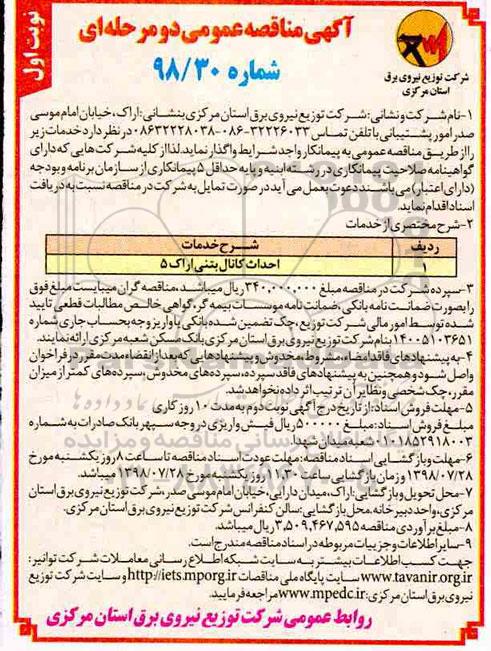 نوبت اول
آگهی مناقصه عمومی دو مرحله‌ای
شماره ۹۸/۳۰
شرکت توزیع نیروی برق
استان مرکزی
۱-نام شرکت و نشانی: شرکت توزیع نیروی برق استان مرکزی بنشانی: اراک، خیابان امام موسی
صدر امور پشتیبانی با تلفن تماس ۳۲۲۲۶۰۳۳-۰۸۶-۰۸۶۳۲۲۲۸۰۳۸ در نظر دارد خدمات زیر
را از طریق مناقصه عمومی به پیمانکار واجد شرایط واگذار نماید. لذا از کلیه شرکت هایی که دارای
گواهینامه صلاحیت پیمانکاری در رشته ابنیه و پایه حداقل ۵ پیمانکاری از سازمان برنامه و بودجه
(دارای اعتبار) می باشند دعوت بعمل می آید در صورت تمایل به شرکت در مناقصه نسبت به دریافت
اسناد اقدام نماید.
۲-شرح مختصری از خدمات
ردیف شرح خدمات
۱ احداث کانال بتنی اراک ۵
۳-سپرده شرکت در مناقصه مبلغ ۳۴۰,۰۰۰,۰۰۰ ریال میباشد، مناقصه گران میبایست مبلغ فوق
را بصورت ضمانت نامه بانکی، ضمانت نامه موسسات بیمه گر، گواهی خالص مطالبات قطعی تایید
شده توسط امور مالی شرکت توزیع، چک تضمین شده بانکی یا واریز وجه بحساب جاری شماره
۱۴۰۰۵۱۰۳۶۵۱ بنام شرکت توزیع نیروی برق استان مرکزی بانک مسکن شعبه مرکزی ارائه نمایند.
۴-به پیشنهادهای فاقد امضاء، مشروط، مخدوش و پیشنهادهایی که بعد از انقضاء مدت مقرر در فراخوان
واصل شود و همچنین به پیشنهادهای فاقد سپرده، سپرده های مخدوش، سپرده های کمتر از میزان
مقرر، چک شخصی و نظایر آن ترتیب اثر داده نخواهد شد.
۵-مهلت فروش اسناد: از تاریخ درج آگهی نوبت دوم به مدت ۱۰ روز کاری
مبلغ فروش اسناد: مبلغ ۵۰۰۰۰۰ ریال فیش واریزی در وجه سپهر بانک صادرات به شماره
۰۱۰۱۸۵۲۹۱۸۰۰۳ شعبه میدان شهدا.
۶-مهلت و بازگشایی اسناد مناقصه: مهلت عودت اسناد مناقصه تا ساعت ۸ روز یکشنبه مورخ
۱۳۹۸/۰۷/۲۸ و زمان بازگشایی ساعت ۱۱:۳۰ روز یکشنبه مورخ ۱۳۹۸/۰۷/۲۸ میباشد.
۷-محل تحویل و بازگشایی: اراک، میدان دارایی، خیابان امام موسی صدر، شرکت توزیع نیروی برق استان
مرکزی، واحد دبیرخانه. محل بازگشایی: سالن کنفرانس شرکت توزیع نیروی برق استان مرکزی.
۸-مبلغ برآوردی مناقصه ۳,۵۰۹,۴۶۷,۵۹۵ ریال میباشد.
۹-سایر اطلاعات و جزییات مربوطه در اسناد مناقصه مندرج است.
جهت کسب اطلاعات بیشتر به سایت شبکه اطلاع رسانی معاملات شرکت توانیر:
www.tavanir.org.ir سایت پایگاه ملی مناقصات http://iets.mporg.ir و سایت شرکت توزیع
نیروی برق استان مرکزی: www.mpedc.ir مراجعه فرمایید.
روابط عمومی شرکت توزیع نیروی برق استان مرکزی